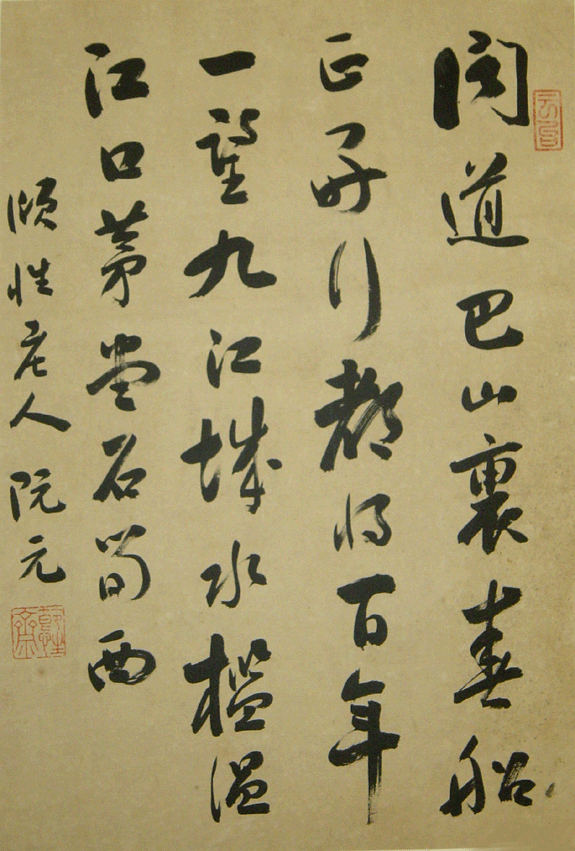 聞道巴山裏春船
正好行都將百年
一望九江城水檻温
江口茅堂石筍西
頤性老人 阮元